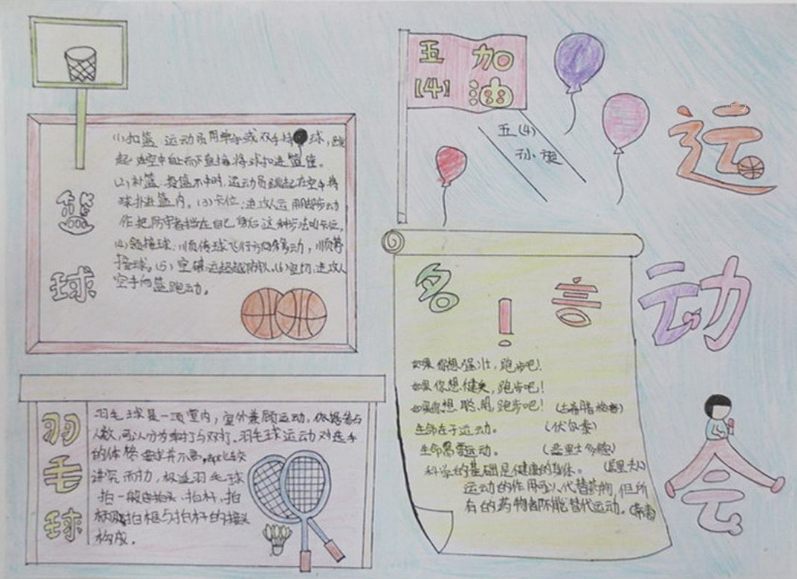 篮球
(1)扣篮:运动员用单手或双手持球,跳
起,在空中自上而下直接将球扣进篮筐。
(2)补篮:投篮不中时,运动员跳起在空中将
球补进篮内。(3)卡位:进攻人运用脚步动
作把防守者挡在自己身后这种步法叫卡位。
(4)领接球:顺传球飞行方向移动,顺势
接球。(5)空 (6)空切:进攻人
空手向篮跑动。
羽毛球
羽毛球是一项室内,室外兼顾运动。依据参与
人数,可以分为单打与双打。羽毛球运动对选手
的体格要求并不高,却比较
讲究耐力,极适 羽毛球
拍一般由拍头、拍杆、拍
柄及拍框与拍杆的接头
构成。
五(4) 加油
五(4)
孙
运动会
名言!
如果你想强壮,跑步吧!
如果你想健美,跑步吧!
如果你想聪明,跑步吧!(古希腊格言)
生命在于运动。(伏尔泰)
生命需要运动。(亚里士多德)
科学的基础是健康的身体。(居里夫人)
运动的作用可以代替药物,但所
有的药物都不能替代运动。